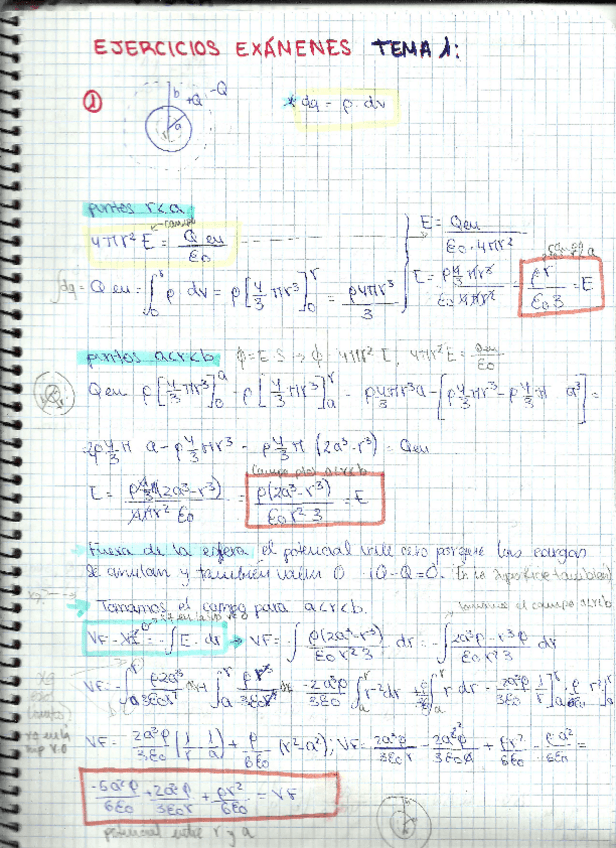 EJERCICIOS EXÁMENES TEMA 1:
① b +Q -Q a r * dq = ρ · dv
puntos r<a
campo
4πr² E = Q en / ε₀
E = Qen / ε₀ · 4πr²
∫dq = Q en = ∫₀^r ρ dv = ρ[4/3 πr³]₀^r = ρ4πr³ / 3
E = ρ 4/3 πr³ / ε₀ 4πr² = ρr / ε₀3 = E
puntos a<r<b φ = E·S → φ 4πr² E, 4πr² E = Qen / ε₀
Q en ρ[4/3 πr³]₀^a - ρ[4/3 πr³]ₐ^r = ρ4/3πr³a - [ρ4/3πr³ - ρ4/3π a³] =
2ρ4/3π a - ρ4/3πr³ = ρ4/3π (2a³-r³) = Qen
campo ptos a<r<b
E = ρ4/3π(2a³-r³) / 4πr² ε₀ = ρ(2a³-r³) / ε₀ r² 3 = E
Fuera de la esfera el potencial vale cero porque las cargas
se anulan y también valen 0 (Q-Q=0. En la superficie también)
Tomamos el campo para a<r<b.
VF - = -∫E · dr → VF = -∫ ρ(2a³-r³) / ε₀ r² 3 dr = -∫ 2a³ρ - r³ρ / ε₀ r² 3 dr
VF = -∫ₐ^r ρ2a³ / 3ε₀r² dr + ∫ₐ^r ρr³ / 3ε₀r² dr = -2a³ρ / 3ε₀ ∫ₐ^r r⁻² dr + ρ / 3ε₀ ∫ₐ^r r dr = 2a³ρ / 3ε₀ [1/r]ₐ^r + ρ / 6ε₀ r²]ₐ^r
VF = 2a³ρ / 3ε₀ (1/r - 1/a) + ρ / 6ε₀ (r²-a²); VF = 2a³ρ / 3ε₀r - 2a²ρ / 3ε₀ + ρr² / 6ε₀ - ρa² / 6ε₀ =
-5a²ρ / 6ε₀ + 2a³ρ / 3ε₀r + ρr² / 6ε₀ = VF
potencial entre r y a